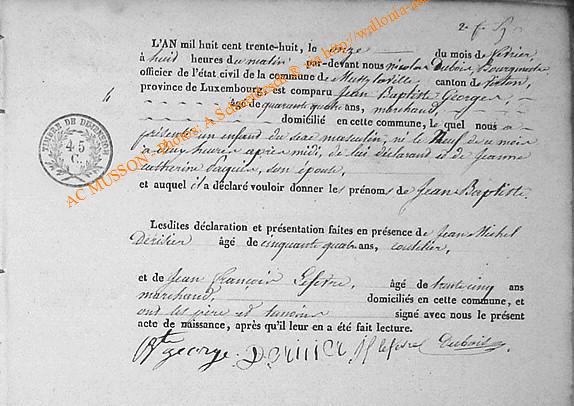 2. f. 5
L'AN mil huit cent trente-huit, le onze du mois de Février
à huit heures du matin par-devant nous nicolas Dubois, Bourgmestre
officier de l'état civil de la commune de canton de Virton,
province de Luxembourg, est comparu Jean Baptiste Georges,
âgé de quarante quatre ans, marchand,
domicilié en cette commune, le quel nous a
présenté un enfant du sexe masculin, né le Neuf de ce mois
à deux heures après midi, de lui déclarant et de jeanne
catherine son épouse,
et auquel il a déclaré vouloir donner les prénoms de Jean Baptiste.
Lesdites déclaration et présentation faites en présence de Jean Michel
âgé de cinquante quatre ans, coutelier,
et de Jean françois Lefevre, âgé de trente cinq ans
marchand, domiciliés en cette commune, et
ont les père et témoins signé avec nous le présent
acte de naissance, après qu'il leur en a été fait lecture.
george. lefevre Dubois
TIMBRE DE DIMENSION
45
C.
AC MUSSON - Photos: A Scheholz ® via http://wallonia-as